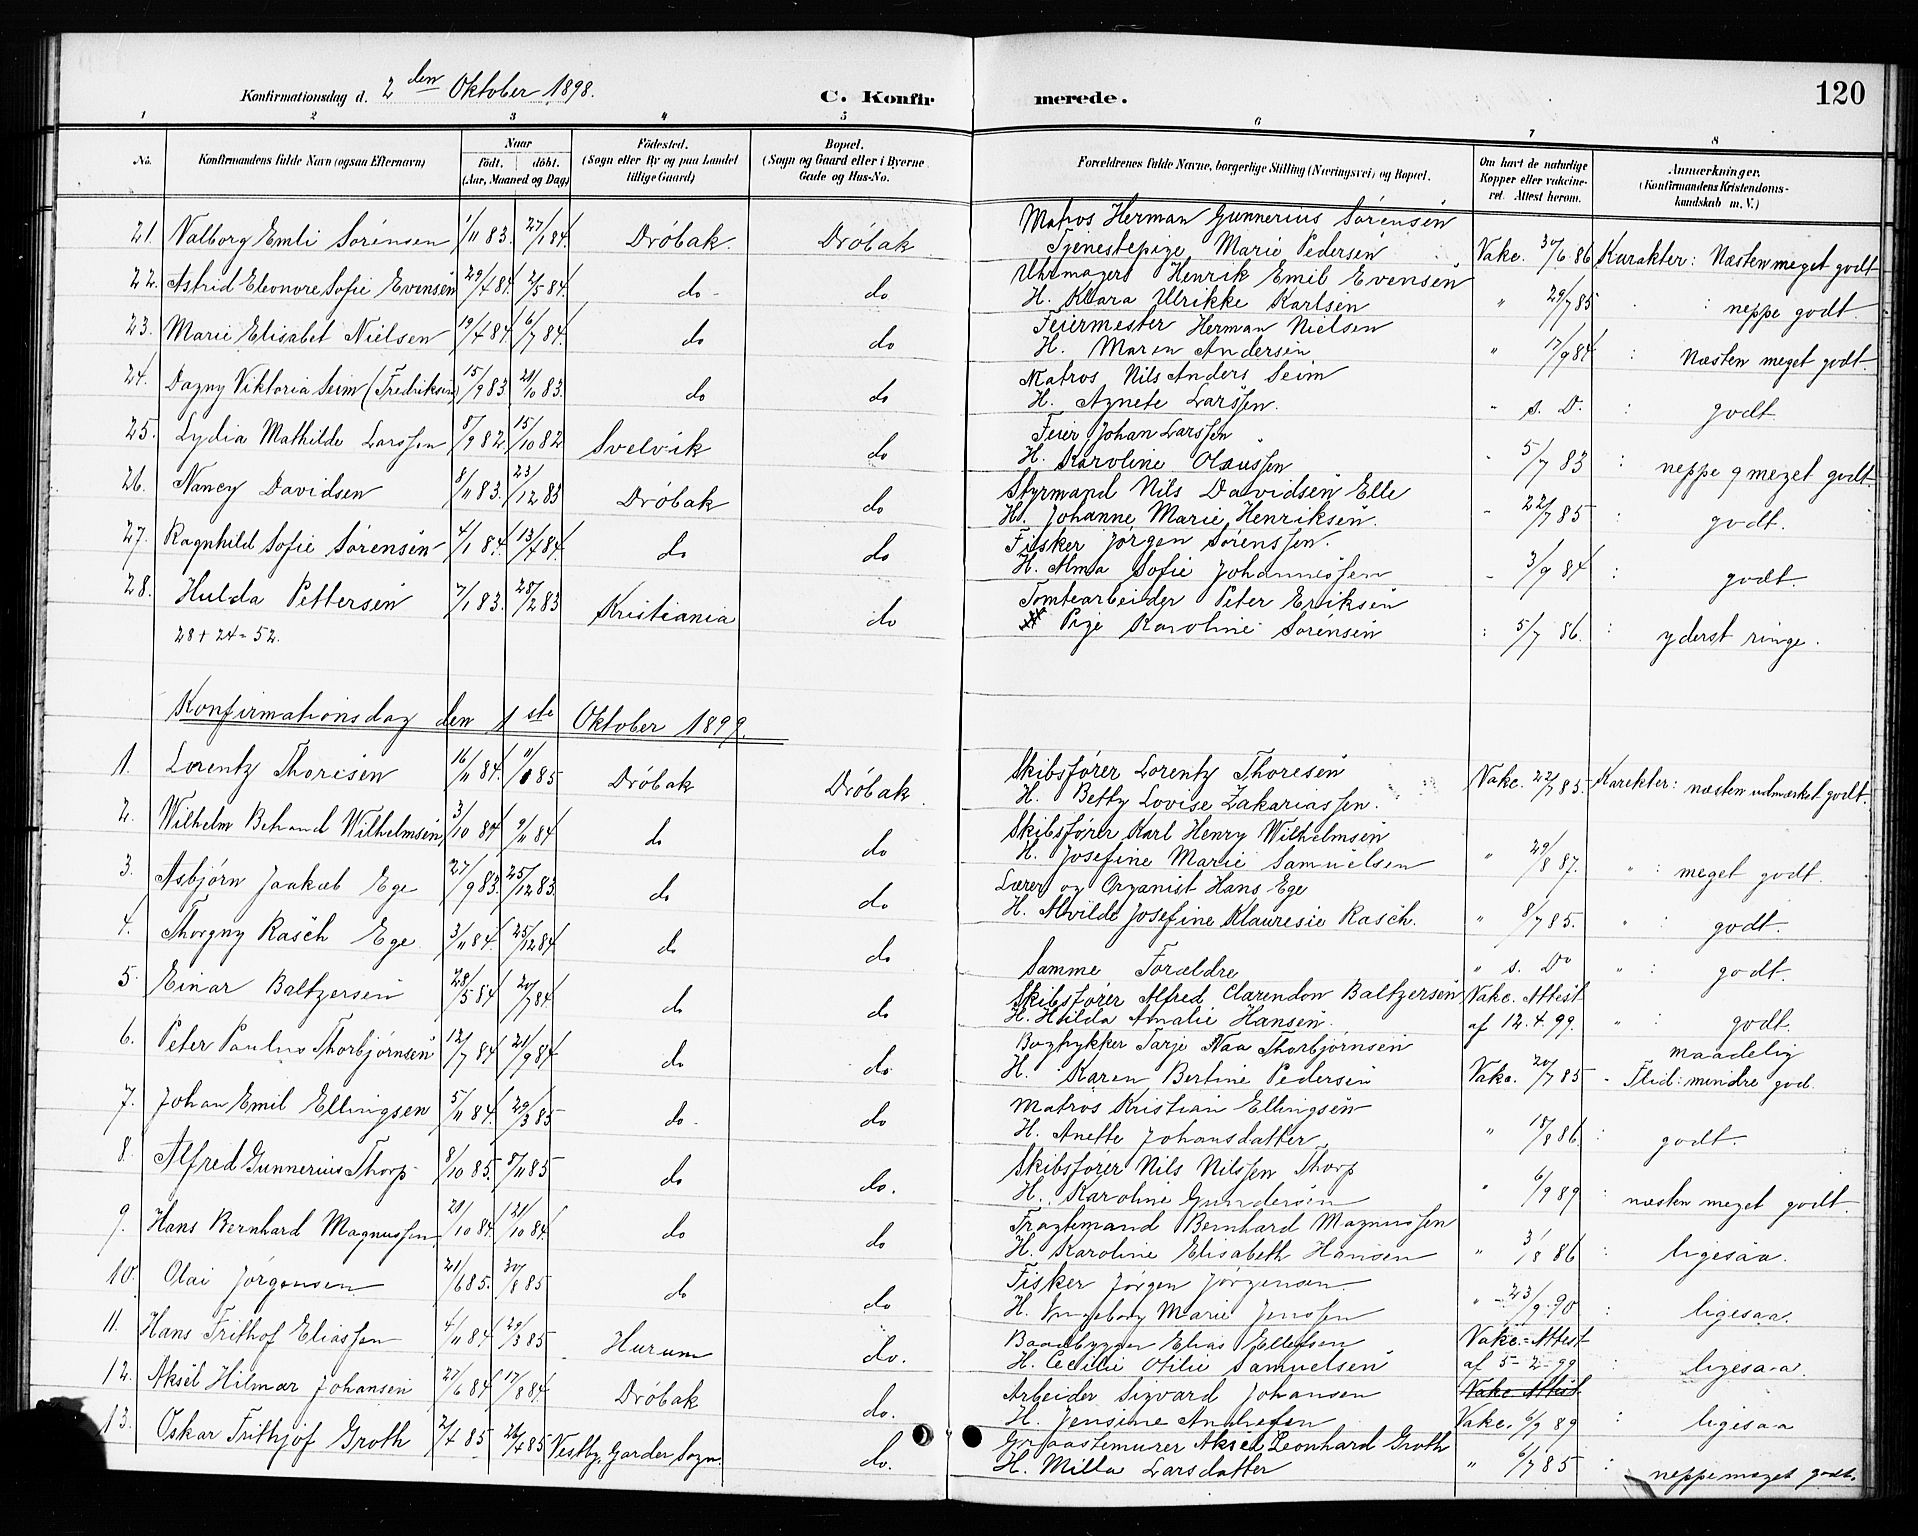 120
Konfirmationsdag d. 2 den Oktober 1898.
C. Konfirmerede.
1 2 3 4 5 6 7 8
No. Konfirmandens fulde Navn (ogsaa Efternavn) Naar født. døbt. (Aar, Maaned og Dag) Fødested. (Sogn eller By og paa Landet tillige Gaard) Bopæl. (Sogn og Gaard eller i Byerne Gade og Hus-No. Forældrenes fulde Navne, borgerlige Stilling (Næringsvei) og Bopæl. Om havt de naturlige Kopper eller vakcineret. Attest herom. Anmærkninger. (Konfirmandens Kristendomskundskab m. V.)
21. Valborg Emli Sørensen 1/11 83. 27/1 84. Drøbak. Drøbak Matros Herman Gunnerius Sørensen
Tjenestepige Marie Pedersen Vakc. 30/6 86 Karakter: Næsten meget godt
22. Astrid Eleonore Sofie Evensen 29/4 84. 2/5 84. do do Uhrmager Henrik Emil Evensen
H. Klara Ulrikke Karlsen " 29/7 85 : neppe godt.
23. Marie Elisabet Nielsen 19/4 84. 6/7 84. do do Feiermester Herman Nielsen
H. Maren Andersen " 17/9 84 : Næsten meget godt.
24. Dagny Viktoria Seim (Fredriksen) 15/9 83. 21/10 83. do do Matros Nils Anders Seim
H. Agnete Larssen. " s. D. : godt
25. Lydia Mathilde Larssen 8/9 82 15/10 82 Svelvik do Feier Johan Larssen
H. Karoline Olaussen " 5/7 83 : neppe meget godt.
26. Nancy Davidsen 8/11 83. 23/12 83 Drøbak do Styrmand Nils Davidsen Elle
H. Johanne Marie Henriksen. " 22/7 85 : godt.
27. Ragnhild Sofie Sørensen 4/1 84. 13/4 84. do do Fisker Jørgen Sørenssen.
H. Alma Sofie Johannessen " 3/9 84 : godt.
28. Hulda Pettersen 7/1 83. 28/2 83 Kristiania do Tomtearbeider Peter Eriksen
Pige Karoline Sørensen : 5/7 86. : yderst ringe.
28 + 24 = 52.
Konfirmationsdag den 1ste Oktober 1899.
1. Lorentz Thoresen 16/11 84. 11/1 85 Drøbak Drøbak. Skibsfører Lorentz Thoresen
H. Betty Lovise Zakariassen. Vakc. 22/7 85. Karakter: næsten udmerket godt.
2. Wilhelm Behrand Wilhelmsen 3/10 84 9/11 84 do do Skibsfører Karl Henry Wilhelmsen
H. Josefine Marie Samuelsen " 29/8 87. " : meget godt.
3. Asbjørn Jaakob Ege 27/9 83. 25/12 83. do do Lærer og Organist Hans Ege
H. Alvilde Josefine Klauresie Rasch. " 8/7 85. " : godt.
4. Thorgny Rasch Ege 3/11 84. 25/12 84 do do Samme Forældre " s. Do " : godt.
5. Einar Baltzersen 28/5 84 20/7 84 do do Skibsfører Alfred Clarendon Baltzersen Vakc. Attest
H. Hilda Amalie Hansen. af 12.4.99. " : godt.
6. Peter Paulus Thorbjørnsen 12/7 84 21/9 84 do do Bogtrykker Tarje Naa Thorbjørnsen maadelig
H. Karen Bertine Pedersen Vakc. 20/7 85 Flid: mindre god.
7. Johan Emil Ellingsen 5/11 84. 29/3 85 do do Matros Kristian Ellingsen
H. Anette Johansdatter " 18/8 86 : godt.
8. Alfred Gunnerius Thorp 8/10 85. 8/11 85 do do. Skibsfører Nils Nilssen Thorp
H. Karoline Gundersen " 6/9 89 : næsten meget godt.
9. Hans Bernhard Magnussen 20/10 84. 21/10 84. do do Fragtemand Bernhard Magnussen
H. Karoline Elisabeth Hansen " 3/8 86 : ligesaa.
10. Olai Jørgensen 21/6 85. 30/8 85 do do Fisker Jørgen Jørgensen
H. Ingeborg Marie Jenssen " 23/9 90 : ligesaa.
11. Hans Frithof Eliassen 4/11 84 29/3 85 Hurum do. Baadbygger Elias Ellefsen Vakc. Attest
H. Cecilie Otilie Samuelsen af 5-2-99 : ligesaa.
12. Aksel Hilmar Johansen 27/6 84 17/8 84. Drøbak do. Arbeider Sigvard Johansen Vakc. Attest
H. Jensine Andresen Vakc. 6/9 89 : ligesaa
13. Oskar Frithjof Groth 2/4 85 26/4 85 Vestby, Garder Sogn. do. Graastenmurer Aksel Leonhard Groth
H. Milla Larsdatter " 6/7 85 : neppe meget godt.